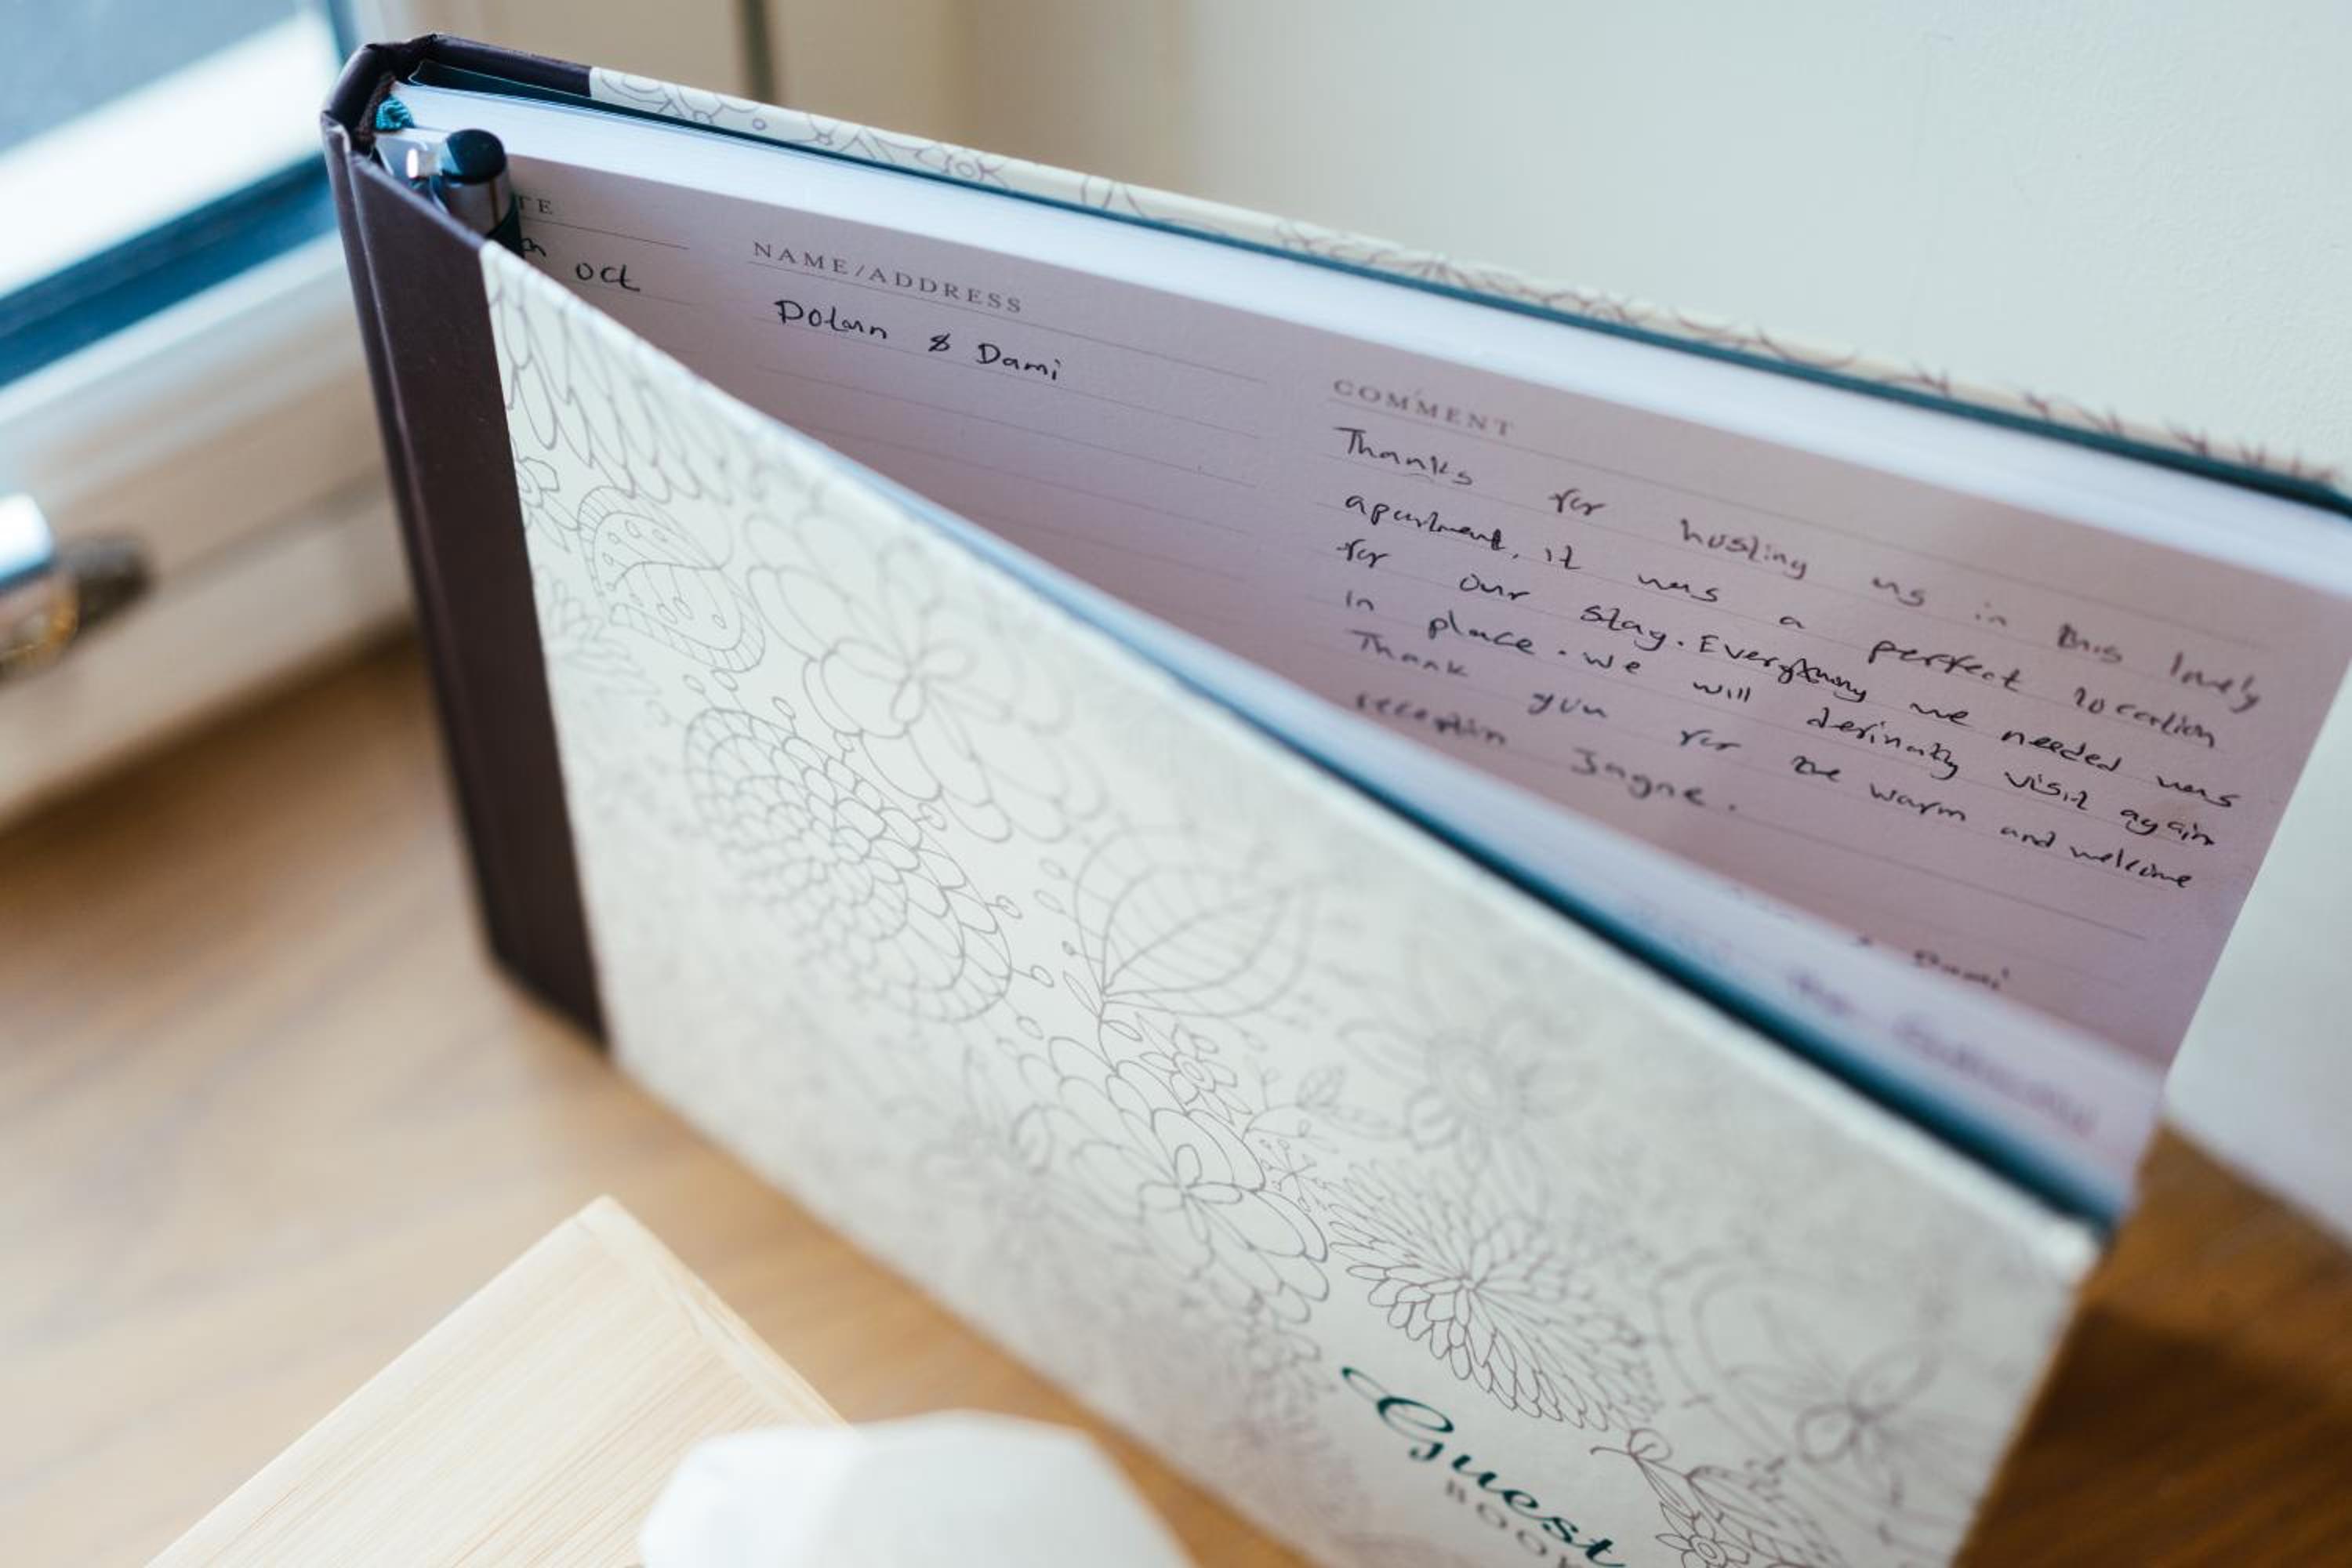 TE
oct
NAME/ADDRESS
Dolan & Dami
COMMENT
Thanks for hosting us in this lovely
apartment, it was a perfect location
for our stay. Everything we needed was
in place. we will definatly visit again
Thank you for the warm and welcome
reception Jagne.
Dami
Guest
BOOK